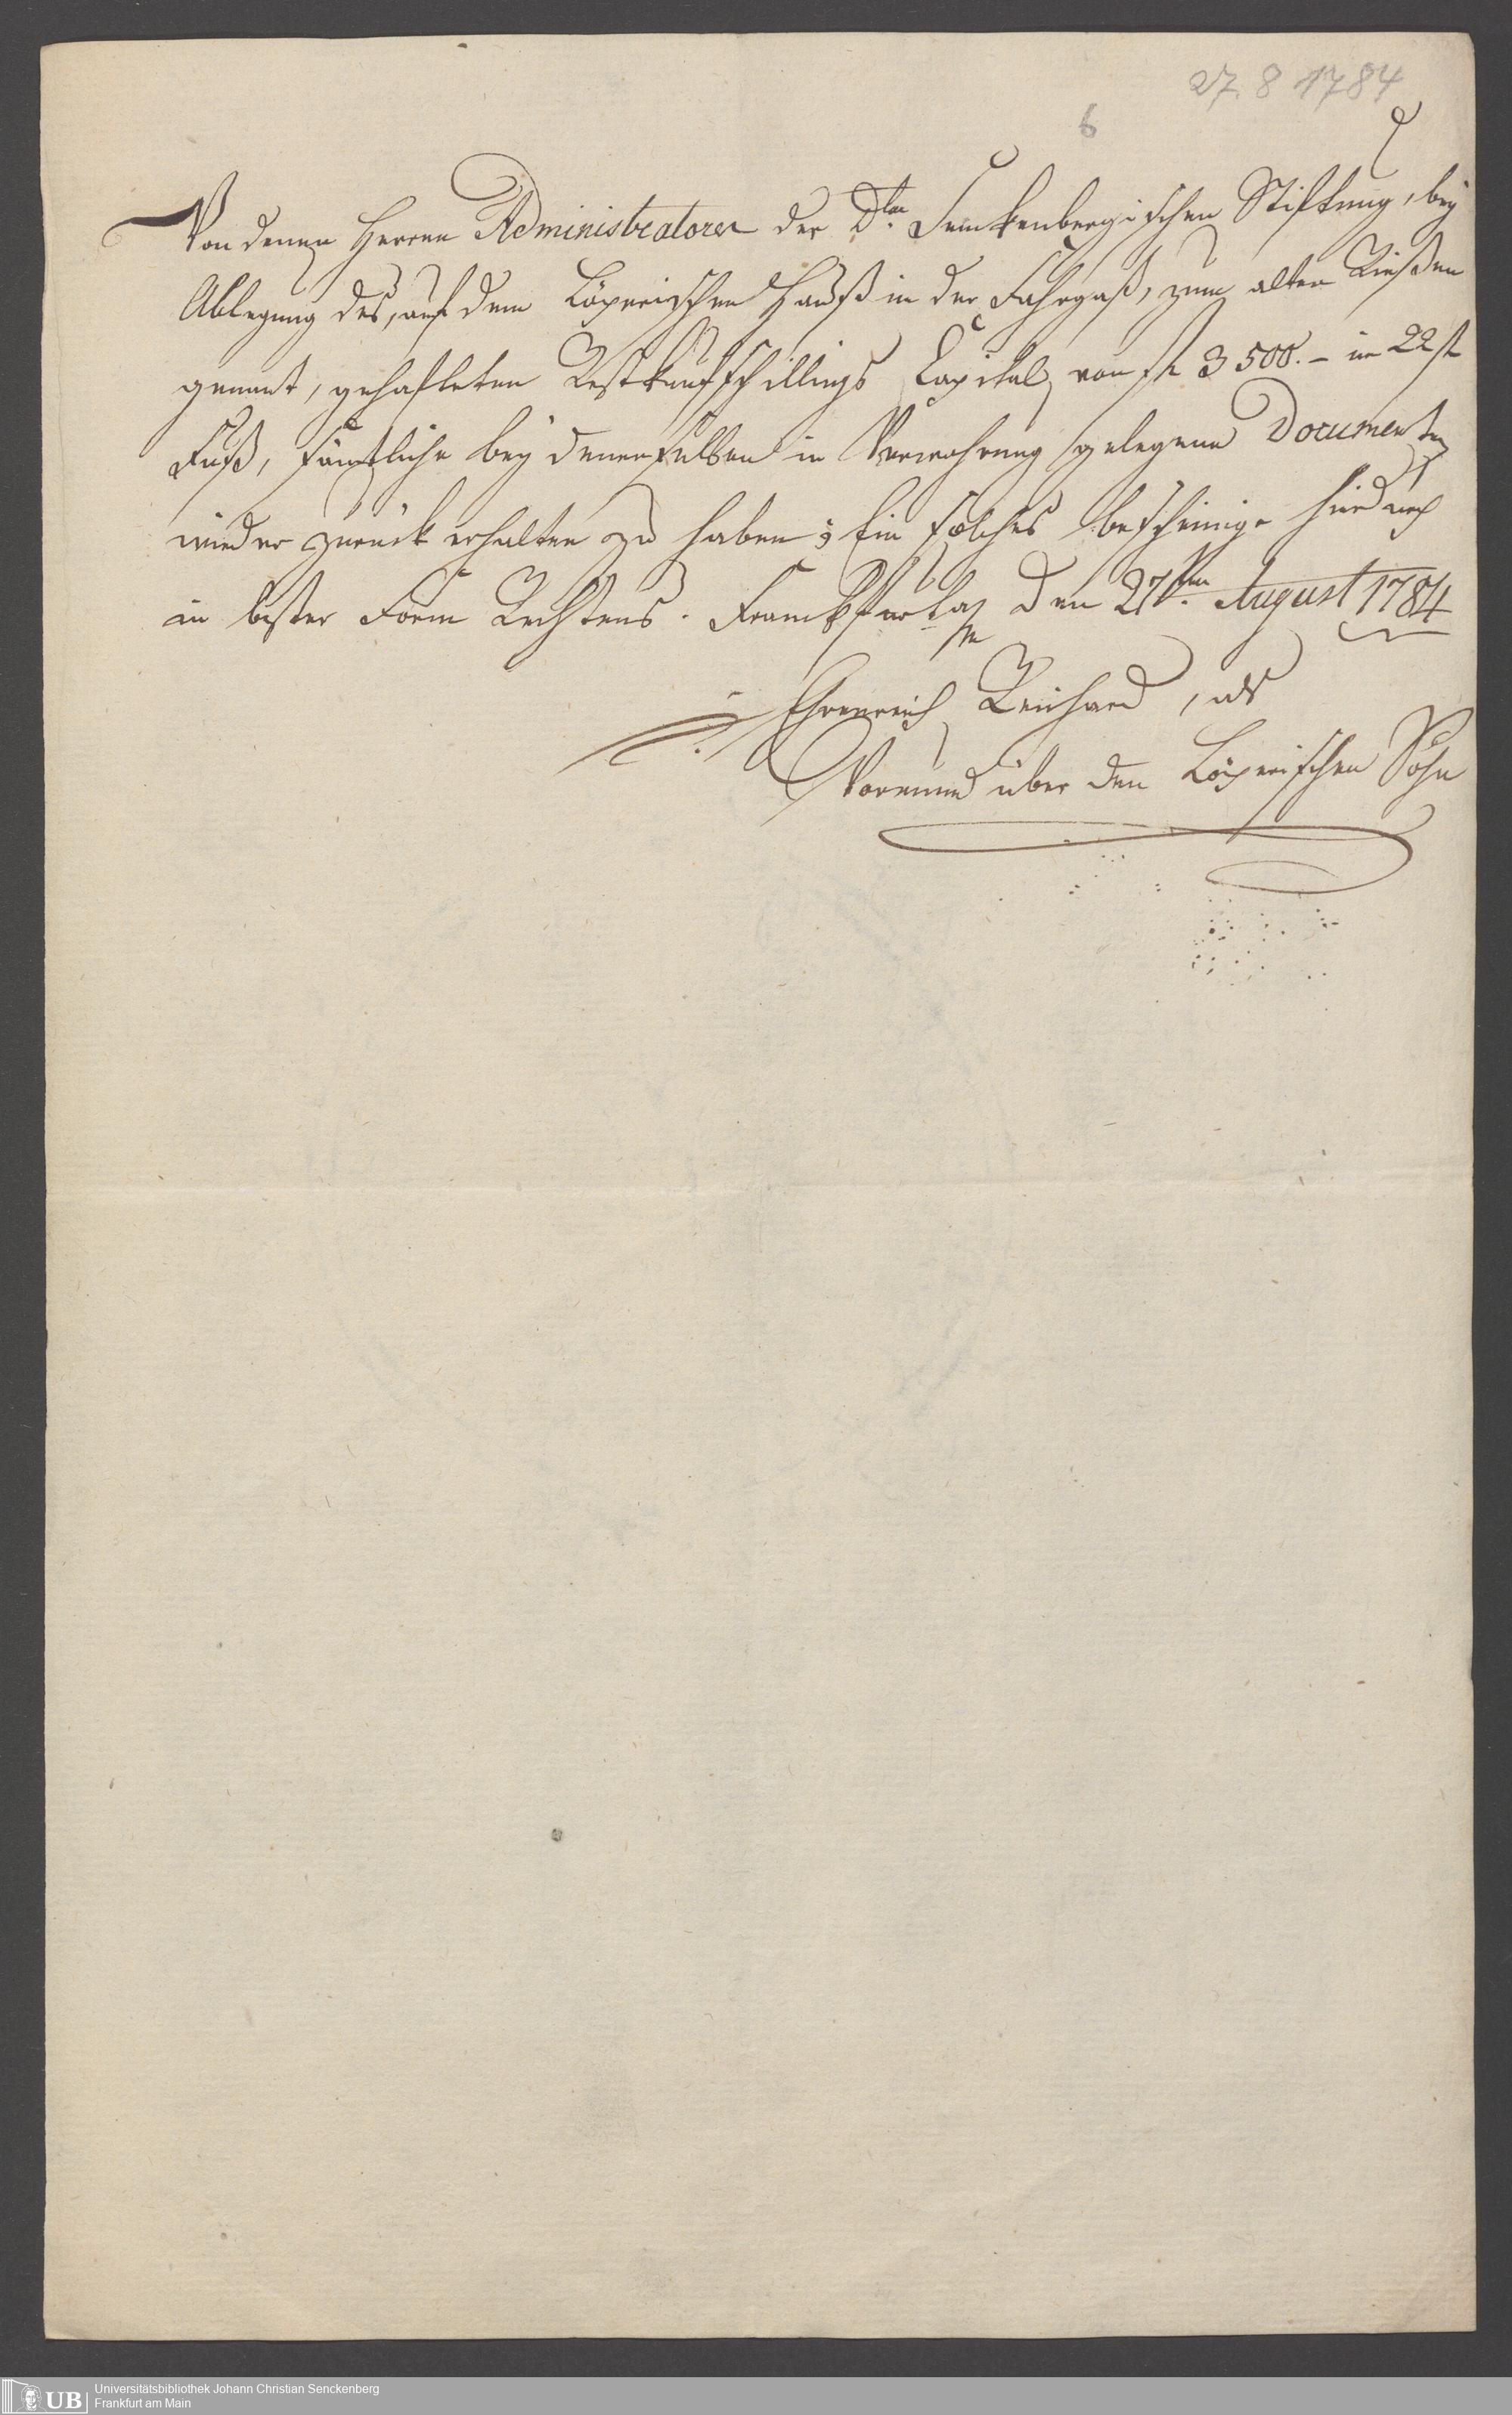 27. 8 1784
6
Von denen Herren Administratoren der Dr. Senckenbergischen Stiftung, bey
Ablegung des, auf dem Löperischen Hauß in der Fahrgaß, zum alten Rießen
genant, gehafteten Restkaufschillings Capital von fl 3500.– im 22 fl
Fuß, sämtliche bey denenselben in Verwahrung gelegene Documenten
wieder zurück erhalten zu haben; Ein solches bescheinige hierdurch
in bester Form Rechtens. Franckfurt den 27ten August 1784
Ehrenreich Reichard, als
Vormund über den Löperischen Sohn
UB
Universitätsbibliothek Johann Christian Senckenberg
Frankfurt am Main